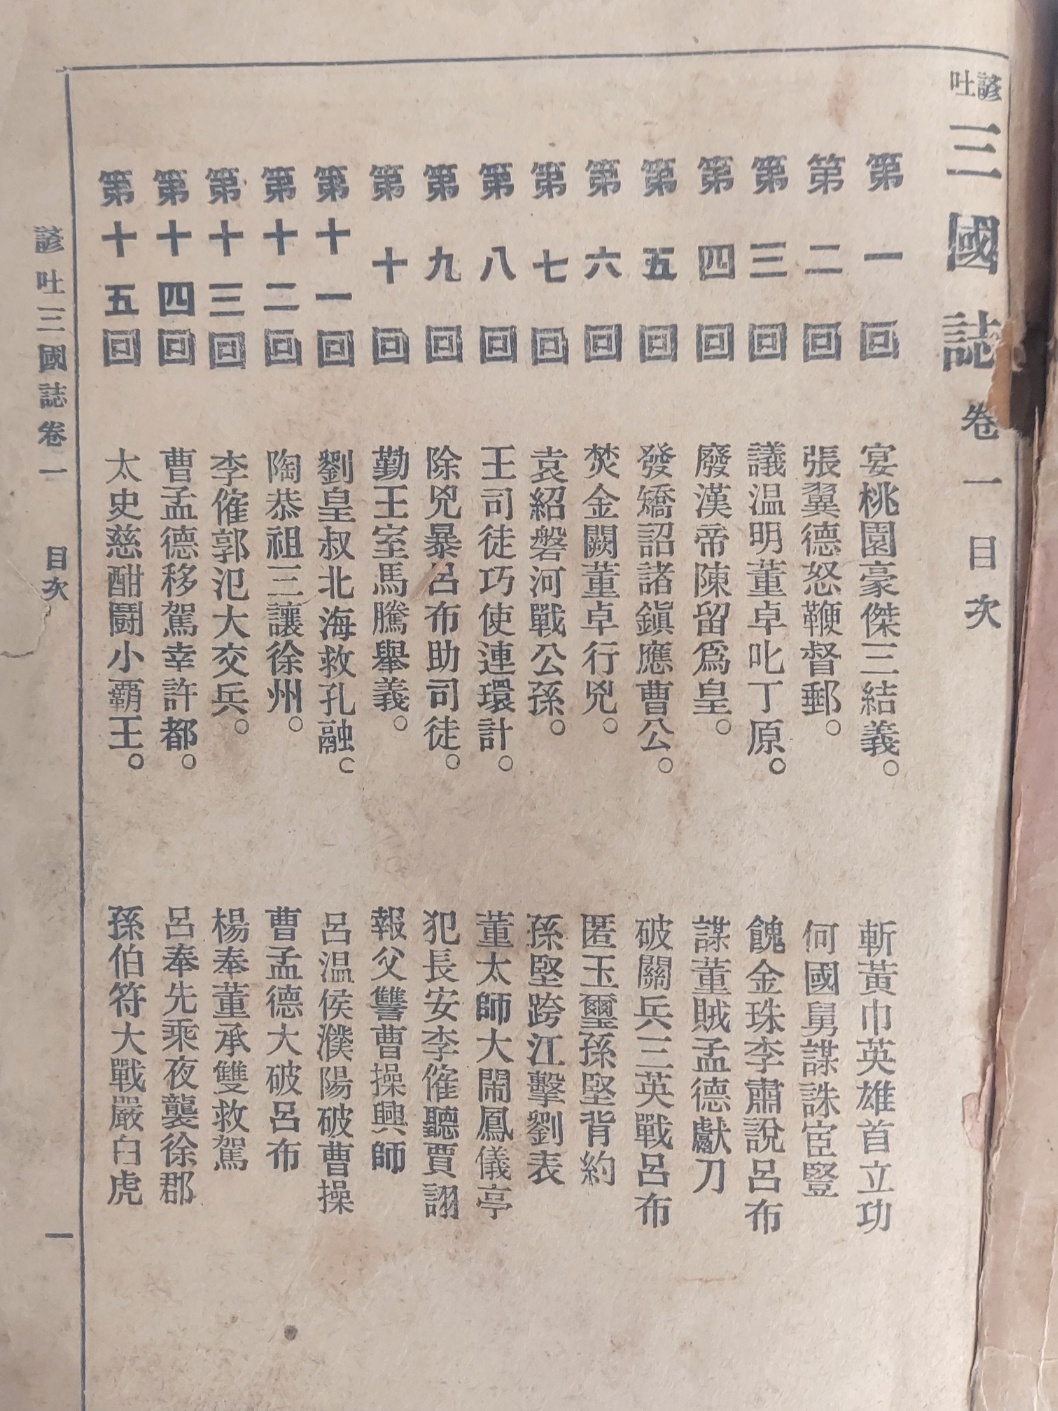 諺吐三國誌卷一目次
第一回 宴桃園豪傑三結義。 斬黃巾英雄首立功
第二回 張翼德怒鞭督郵。 何國舅謀誅宦豎
第三回 議温明董卓叱丁原。 餽金珠李肅說呂布
第四回 廢漢帝陳留爲皇。 謀董賊孟德獻刀
第五回 發矯詔諸鎭應曹公。 破關兵三英戰呂布
第六回 焚金闕董卓行兇。 匿玉璽孫堅背約
第七回 袁紹磐河戰公孫。 孫堅跨江擊劉表
第八回 王司徒巧使連環計。 董太師大鬧鳳儀亭
第九回 除兇暴呂布助司徒。 犯長安李傕聽賈詡
第十回 勤王室馬騰舉義。 報父讐曹操興師
第十一回 劉皇叔北海救孔融。 呂温侯濮陽破曹操
第十二回 陶恭祖三讓徐州。 曹孟德大破呂布
第十三回 李傕郭汜大交兵。 楊奉董承雙救駕
第十四回 曹孟德移駕幸許都。 呂奉先乘夜襲徐郡
第十五回 太史慈酣鬪小霸王。 孫伯符大戰嚴白虎
諺吐三國誌卷一 目次 一